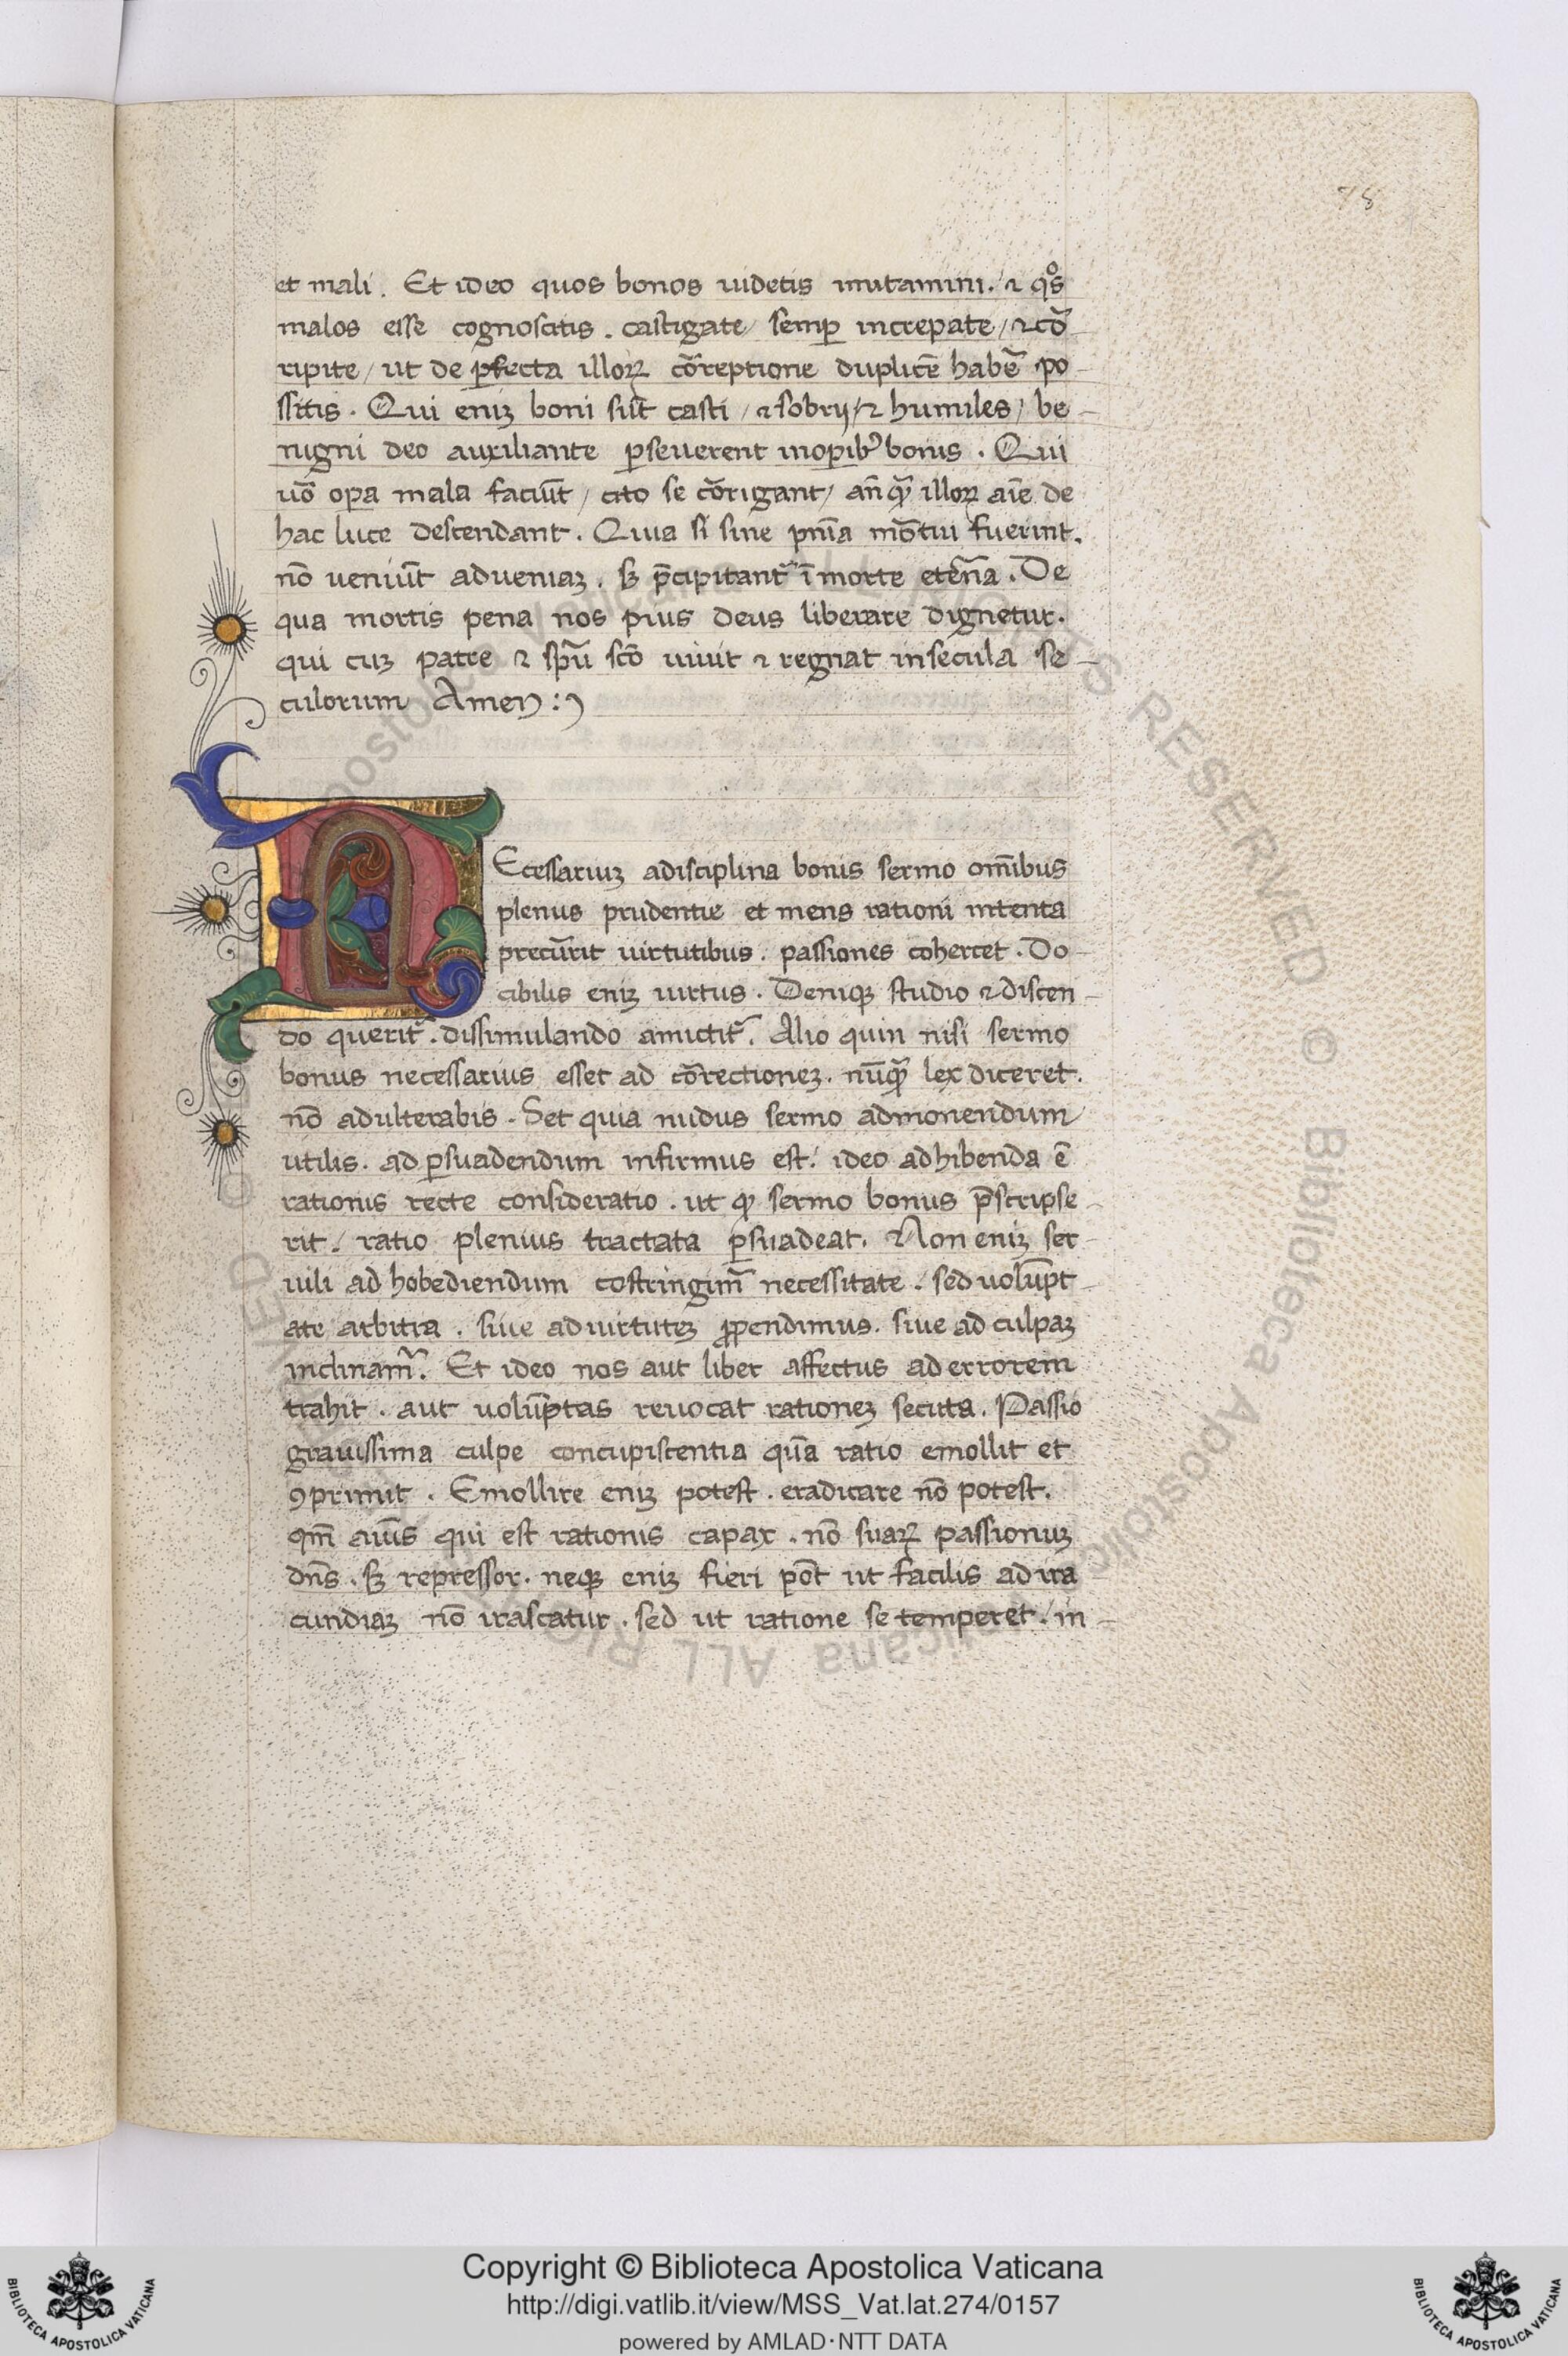 78
et mali. Et ideo quos bonos uidetis imitamini. ⁊ qͦs
malos esse cognoscitis. castigate / semꝑ increpate / ⁊ cō
ripite / ut de ꝑfecta illoꝝ cōreptione duplicē habē po
ssitis. Qui eniꝫ boni sūt casti / ⁊ sobrij / ⁊ humiles / be
nigni deo auxiliante ꝑseuerent inoꝑibꝰ bonis. Qui
uō oꝑa mala faciūt / cito se cōrigant / an̄ qꝫ̄ illoꝝ aīe de
hac luce descendant. Quia si sine pn̄ia mōtui fuerint.
nō ueniūt adueniaꝫ. sꝫ p̄cipitant᷑ ī morte etēna. De
qua mortis pena nos pius deus liberare dignetur.
qui cuꝫ patre ⁊ sp̄u sc̄o uiuit ⁊ regnat insecula se
culorum Amen :)
NEcessariuꝫ adisciplina bonis sermo om̄ibus
plenus prudentie et mens rationi intenta
precūrit uirtutibus. passiones cohercet. Do
cibilis eniꝫ uirtus. Deniqꝫ studio ⁊ discen
do querit᷑. dissimulando amictit᷑. Alio quin nisi sermo
bonus necessarius esset ad cōrectioneꝫ. nūqꝫ̄ lex diceret.
nō adulterabis. Set quia nudus sermo admonendum
utilis. ad ꝑsuadendum infirmus est. ideo adhibenda ē
rationis recte consideratio. ut qꝫ sermo bonus p̄scripse
rit / ratio plenius tractata ꝑsuadeat. Non eniꝫ ser
uili ad hobediendum costringim᷑ necessitate / sed uolūpt
ate arbitra. siue aduirtuteꝫ ꝓpendimus. siue ad culpaꝫ
inclinam᷑. Et ideo nos aut liber affectus ad errorem
trahit. aut uolūptas reuocat rationeꝫ secuta. Passio
grauissima culpe concupiscentia quā ratio emollit et
ꝯprimit. Emollire eniꝫ potest. eradicare nō potest.
qm̄ aiūs qui est rationis capax. nō suaꝝ passionuꝫ
dn̄s. sꝫ repressor. neqꝫ eniꝫ fieri pōt ut facilis ad ira
cundiaꝫ nō irascatur. sed ut ratione se temperet / in
Copyright © Biblioteca Apostolica Vaticana
http://digi.vatlib.it/view/MSS_Vat.lat.274/0157
powered by AMLAD·NTT DATA